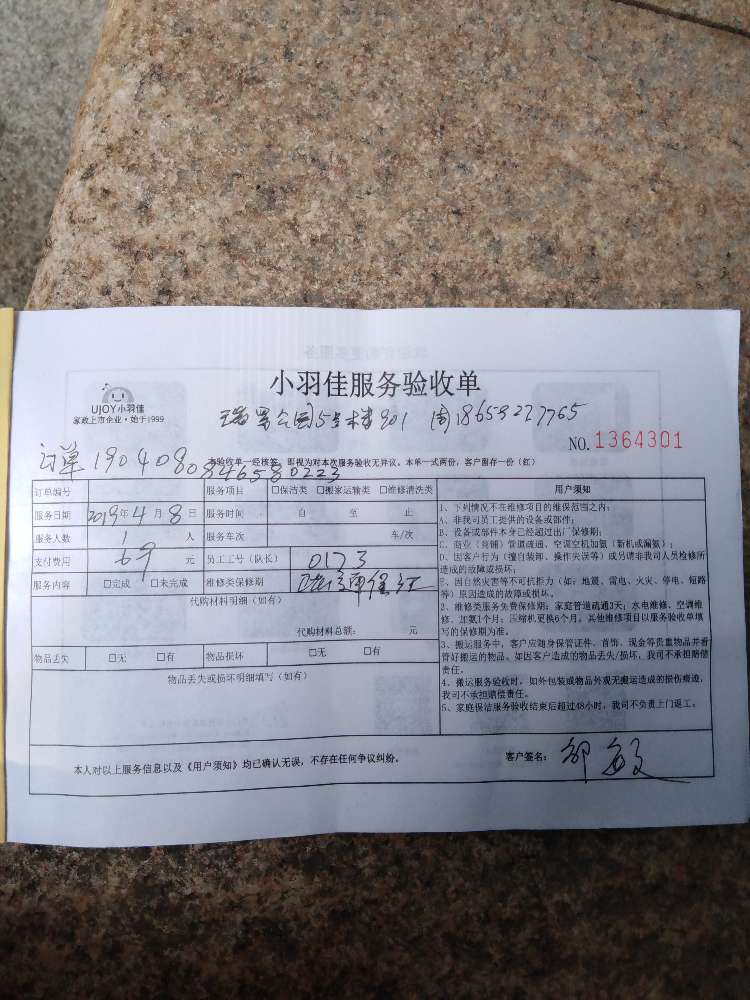 小羽佳服务验收单
UJOY小羽佳
家政上市企业·始于1999
5号楼901 周18659227765
NO. 1364301
订单190408084658 0223
本验收单一经核签，即视为对本次服务验收无异议。本单一式两份，客户留存一份（红）
订单编号 服务项目 □保洁类 □搬家运输类 □维修清洗类
服务日期 2019年4月8日 服务时间 自 至 止
服务人数 1 人 服务车次 车/次
支付费用 69 元 员工工号（队长） 0173
服务内容 □完成 □未完成 维修类保修期
代购材料明细（如有）
代购材料总额： 元
物品丢失 □无 □有 物品损坏 □无 □有
物品丢失或损坏明细填写（如有）
用户须知
1、下列情况不在维修项目的维保范围之内：
A、非我司员工提供的设备或部件；
B、设备或部件本身已经超过出厂保修期；
C、商业（商铺）管道疏通、空调空机加氨（新机或漏氨）；
D、因客户行为（擅自装卸、操作失误等）或另请非我司人员检修所
造成的故障或损坏；
E、因自然灾害等不可抗拒力（如：地震、雷电、火灾、停电、短路
等）原因造成的故障或损坏。
2、维修类服务免费保修期：家庭管道疏通3天；水电维修、空调维
修、加氨1个月；压缩机更换6个月。其他维修项目以服务验收单填
写的保修期为准。
3、搬运服务中，客户应随身保管证件、首饰、现金等贵重物品并看
管好搬运的物品。如因客户造成的物品丢失/损坏，我司不承担赔偿
责任。
4、搬运服务验收时，如外包装或物品外观无搬运造成的损伤痕迹，
我司不承担赔偿责任。
5、家庭保洁服务验收结束后超过48小时，我司不负责上门返工。
本人对以上服务信息以及《用户须知》均已确认无误，不存在任何争议纠纷。
客户签名：